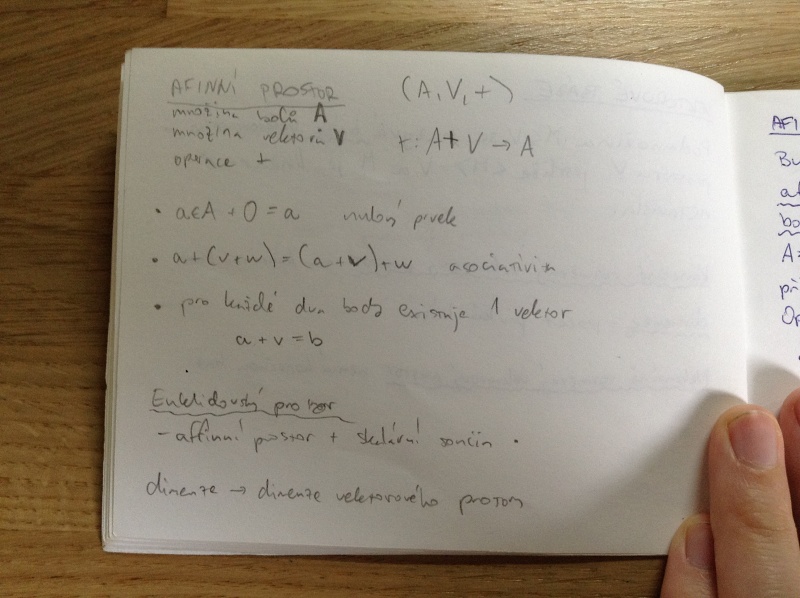 AFINNÍ PROSTOR
(A, V, +)
množina bodů A
množina vektorů V
+: A + V → A
operace +
• a∈A + 0 = a nulový prvek
• a+(v+w) = (a+v)+w asociativita
• pro každé dva body existuje 1 vektor
a + v = b
Euklidovský prostor
- affinní prostor + skalární součin •
dimenze → dimenze vektorového prostoru
AFI
Bu
af
bo
A=
při
Op